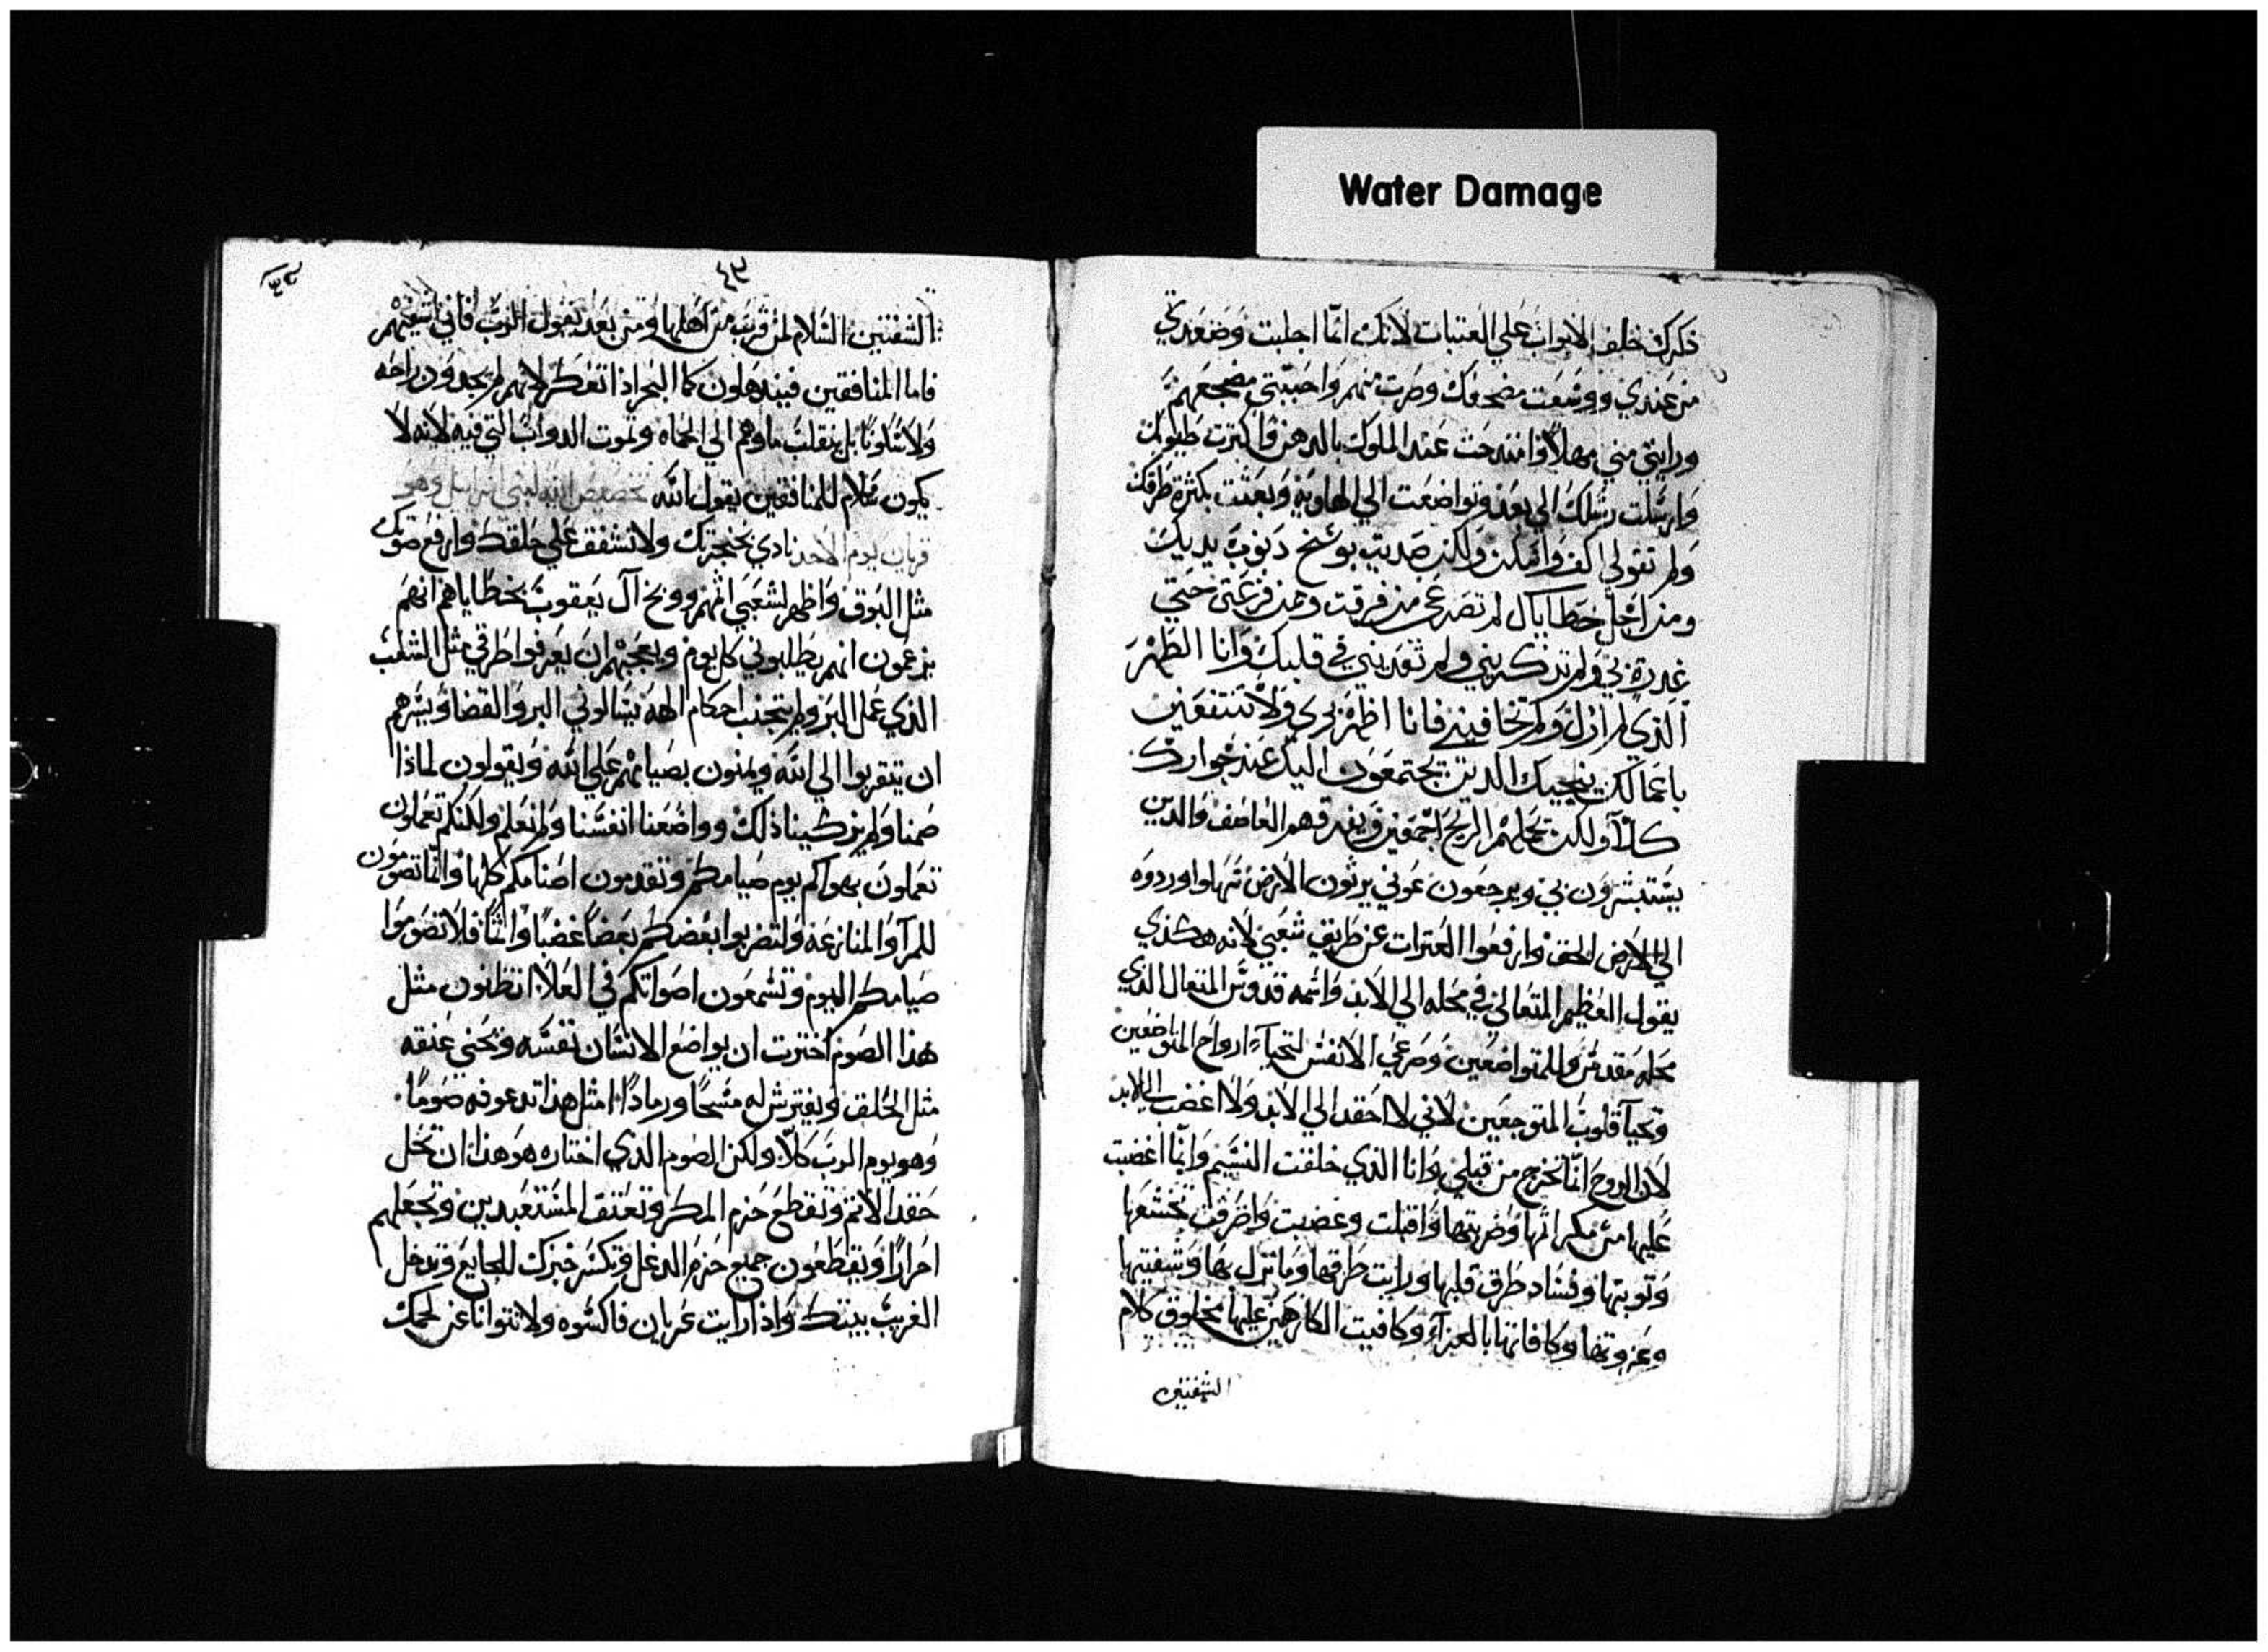 Water Damage
ذكرك خلف الابواب علي العتبات لانك انما اجلبت وصعدتي
من عندي ووسعت مضجعك وصرت منهم واحببتي مضجعهم
ورايتي مني مهلا وامتدحت عند الملوك بالدهن واكثرت طيوبك
وارسلت رسلك الي بعد وتواضعت الي الهاويه وتعبت بكثرة طرقك
ولم تقولي اكف وامكن ولكن صديت بوسخ ذنوب يديك
ومن اجل خطاياك لم تصرعي من فرقت ومن فزعتي حتي
غدرتي بي ولم تذكريني ولم تعديني في قلبك وانا الطهر
الذي لم ازل ولم تخافيني فانا اظهر بري ولا تنتفعين
باعمالك ينجيك الذين يجتمعون اليك عند جوارك
كلا ولكن تحملهم الريح اجمعين ويفرقهم العاصف والذين
يستبشرون بي ويرجعون عوني يرثون الارض نهلوا وردوه
الي الارض وارفعوا العثرات عن طريق شعبي لانه هكذي
يقول العظيم المتعالي في محله الي الابد واسمه قدوس المتعال الذي
محله مقدس وللمتواضعين وصرعي الانفس لتحيا ارواح المتواضعين
وتحيا قلوب المتوجعين لاني لا احقد الي الابد ولا اغضب الي الابد
لان الروح انما تخرج من قبلي وانا الذي خلقت النسيم وانما اغضبت
عليها من مكر اثمها وضربتها واقبلت وغضبت واضرفت تخشعها
وتوبتها وفساد طرق قلبها ورايت طرقها وما نزل بها وشفيتها
وعزوتها وكافاتها بالعزاء وكافيت الكارهين عليها مخلوق كلام
الشفتين
٤٣
الشفتين السلام لمن قرب من اهلها ومن بعد يقول الرب فاني اشفيهم
فاما المنافقين فيندهلون كما البحر اذا تعكر لانهم لم يجدون راحه
ولا سلونا بل ينقلب ماوهم الي الحماه وتموت الدواب التي فيه لانه لا
يكون سلام للمنافقين يقول الله
قربان يوم الاحد نادي بحنجرتك ولا تشفق علي حلقك وارفع صوتك
مثل البوق واظهر لشعبي اثمهم ووبخ آل يعقوب بخطاياهم انهم
يزعمون انهم يطلبوني كل يوم ويعجبهم ان يعرفوا طرقي مثل الشعب
الذي عمل البر ولم يتجنب احكام الهه يسالوني البر والقضا ويسرهم
ان يتقربوا الي الله ويمنون بصيامهم علي الله ويقولون لماذا
صمنا ولم يزكينا ذلك وواضعنا انفسنا ولم نعلم ولكنكم تعملون
تعملون بهواكم يوم صيامكم وتقدمون اصنامكم كلها وانما تصومون
للمرآ والمنازعه ولتضربوا بعضكم بعضا غضبا واثما فلا تصوموا
صيامكم اليوم وتسمعون اصواتكم في العلا اتظنون مثل
هذا الصوم اخترت ان يواضع الانسان نفسه ويحني عنقه
مثل الحلقه ويفترش له مسحا ورمادا امثل هذا تدعوفه صوما
وهو يوم الرب كلا ولكن الصوم الذي اختاره هو هذا ان تحل
حقد الاثم وتقطع حزم المكر وتعتق المستعبدين وتجعلهم
احرارا ويقطعون جميع حزم الدغل وتكسر خبزك للجايع وتدخل
الغريب بيتك واذا رايت عريان فاكسوه ولا تتوانا عن لحمك